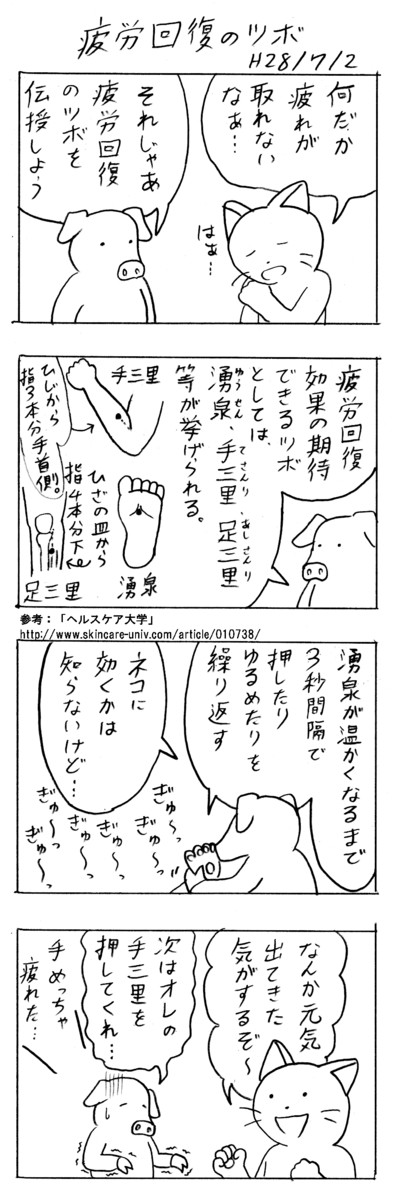 疲労回復のツボ
H28/7/2
何だか
疲れが
取れない
なぁ…
はぁ…
それじゃあ
疲労回復
のツボを
伝授しよう
疲労回復
効果の期待
できるツボ
としては、
湧泉、手三里、足三里
ゆうせん
てさんり
あしさんり
等が挙げられる。
手三里
ひじから
指3本分手首側。
ひざの皿から
指4本分下
湧泉
足三里
参考:「ヘルスケア大学」
http://www.skincare-univ.com/article/010738/
湧泉が温かくなるまで
3秒間隔で
押したり
ゆるめたりを
繰り返す
ネコに
効くかは
知らないけど…
ぎゅ〜っ
ぎゅ〜っ
ぎゅ〜っ
ぎゅ〜っ
ぎゅ〜っ
なんか元気
出てきた
気がするぞ〜
次はオレの
手三里を
押してくれ…
手めっちゃ
疲れた…